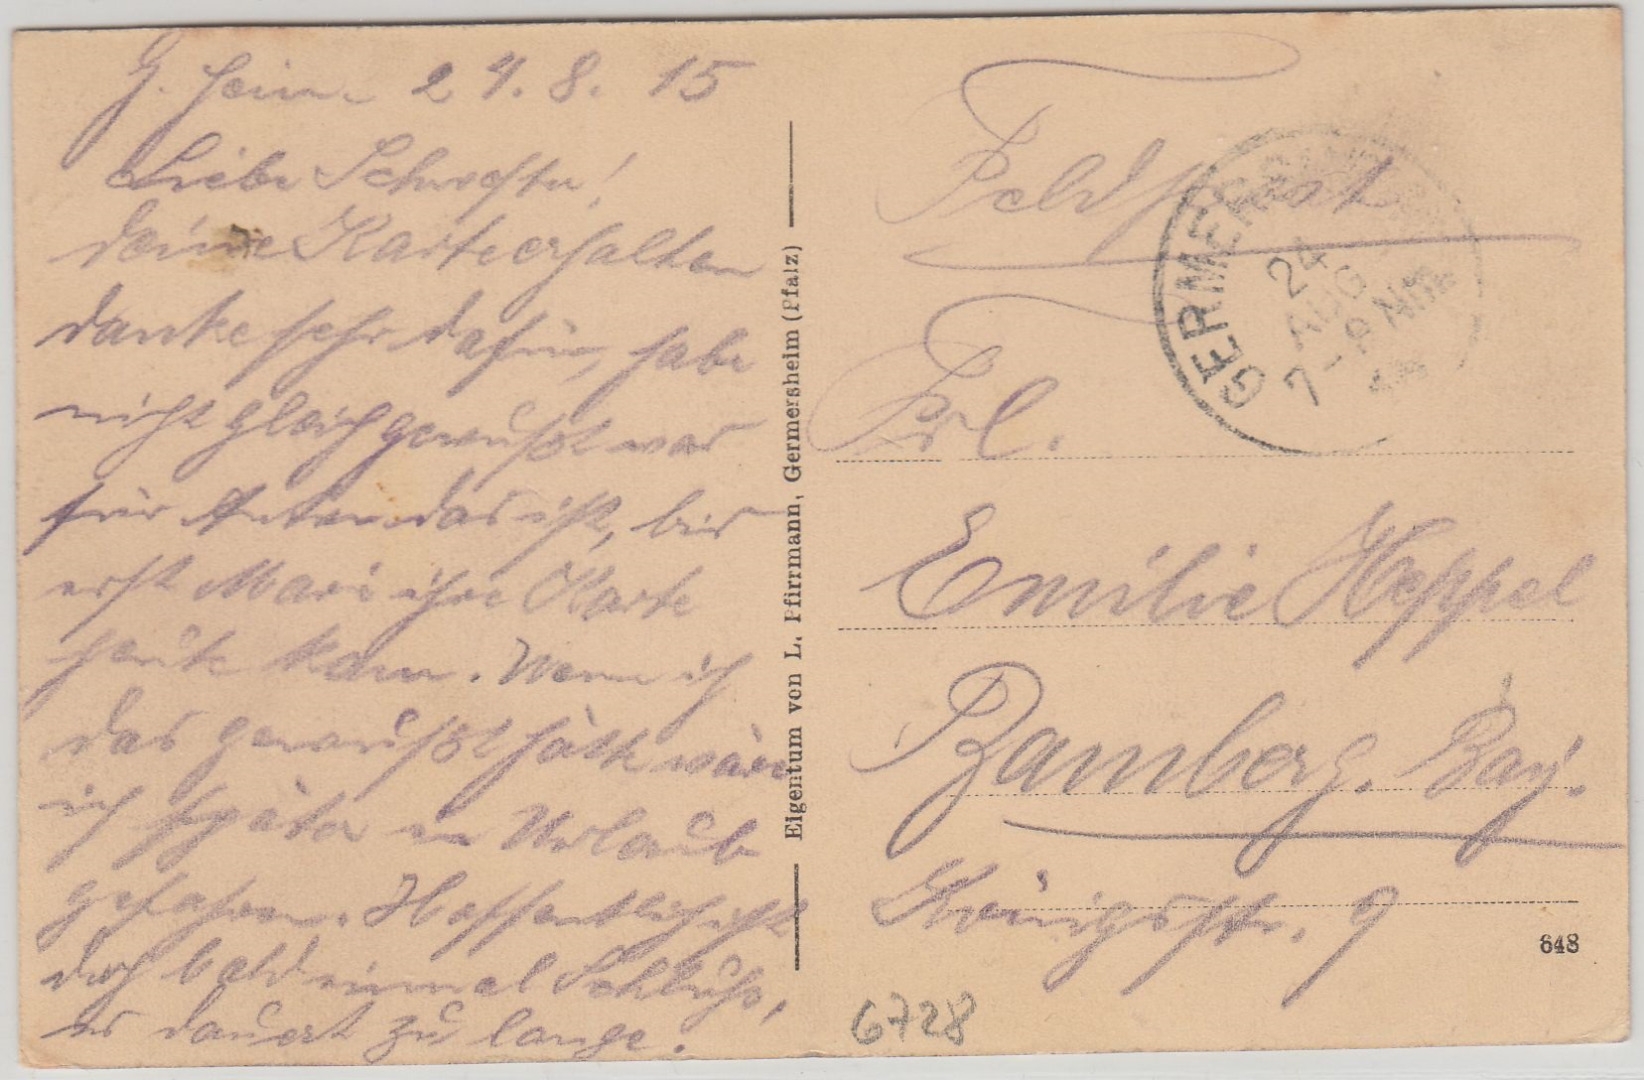 G. heim 24.8.15
Liebe Schwester!
deine Karte erhalten
danke sehr dafür, habe
nicht gleich gewußt was
für das ist, bis
erst Mari ihre Karte
heute kam. Wenn ich
das gewußt hätte wäre
ich später in Urlaub
gefahren. Hoffentlich ist
doch bald einmal Schluß,
es dauert zu lange.
Eigentum von L. Pfirrmann, Germersheim (Pfalz)
Feldpost
GERMERSHEIM
24
AUG
7-8 Nm
Frl.
Emilie Heppel
Bamberg. Bay.
Königsstr. 9
648
6728